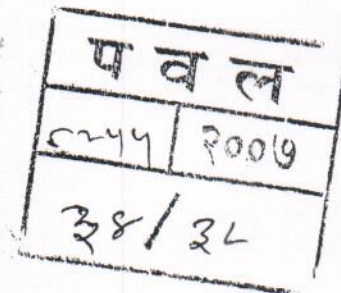 प व ल
८२५५ २००७
३४ / ३८